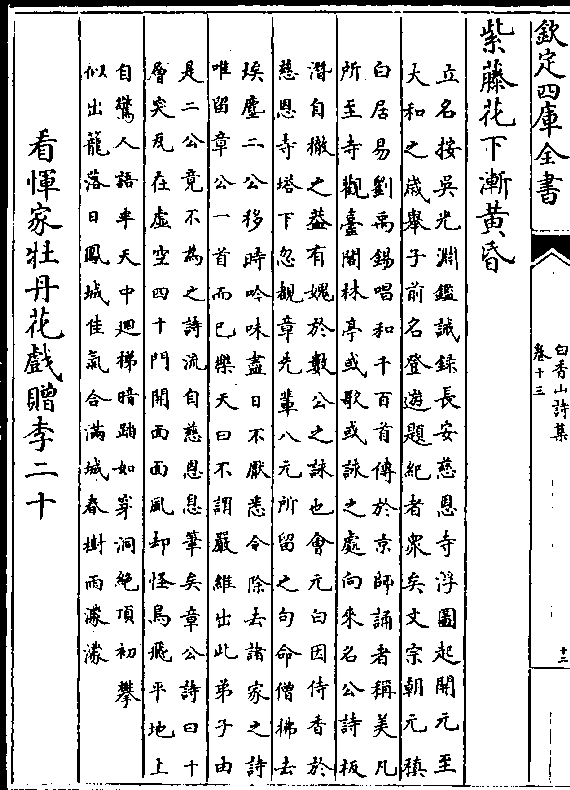 欽定四庫全書
白香山詩集
卷十三
十二
紫藤花下漸黃昏
立名按吳光淵鑑誡錄長安慈恩寺浮圖起開元至
大和之歲舉子前名登遊題紀者衆矣文宗朝元稹
白居易劉禹錫唱和千百首傳於京師誦者稱美凡
所至寺觀臺閣林亭或歌或詠之處向來名公詩板
潛自撤之葢有媿於數公之詠也會元白因侍香於
慈恩寺塔下忽覩章先輩八元所留之句命僧拂去
埃塵二公移時吟味盡日不厭悉令除去諸家之詩
唯留章公一首而已樂天曰不謂嚴維出此弟子由
是二公竟不為之詩流自慈恩息筆矣章公詩曰十
層突兀在虛空四十門開面面風却怪鳥飛平地上
自驚人語半天中迴梯暗踏如穿洞絶頂初攀
似出籠落日鳳城佳氣合滿城春樹雨濛濛
看惲家牡丹花戲贈李二十